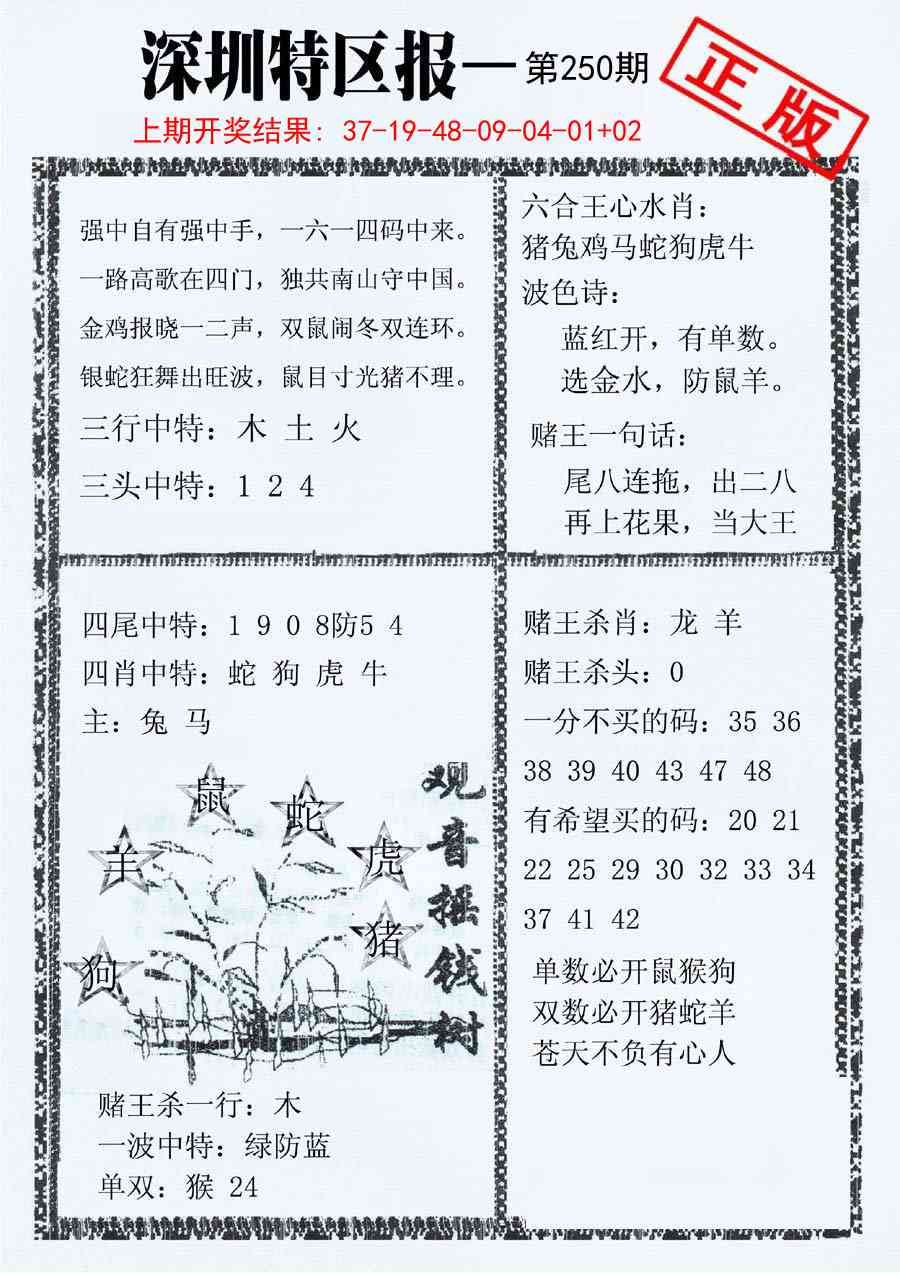 深圳特区报—第250期
正版
上期开奖结果：37-19-48-09-04-01+02
强中自有强中手，一六一四码中来。
一路高歌在四门，独共南山守中国。
金鸡报晓一二声，双鼠闹冬双连环。
银蛇狂舞出旺波，鼠目寸光猪不理。
三行中特：木 土 火
三头中特：1 2 4
六合王心水肖：
猪兔鸡马蛇狗虎牛
波色诗：
蓝红开，有单数。
选金水，防鼠羊。
赌王一句话：
尾八连拖，出二八
再上花果，当大王
四尾中特：1 9 0 8防5 4
四肖中特：蛇 狗 虎 牛
主：兔 马
鼠
蛇
羊
虎
猪
狗
观音摇钱树
赌王杀一行：木
一波中特：绿防蓝
单双：猴 24
赌王杀肖：龙 羊
赌王杀头：0
一分不买的码：35 36
38 39 40 43 47 48
有希望买的码：20 21
22 25 29 30 32 33 34
37 41 42
单数必开鼠猴狗
双数必开猪蛇羊
苍天不负有心人